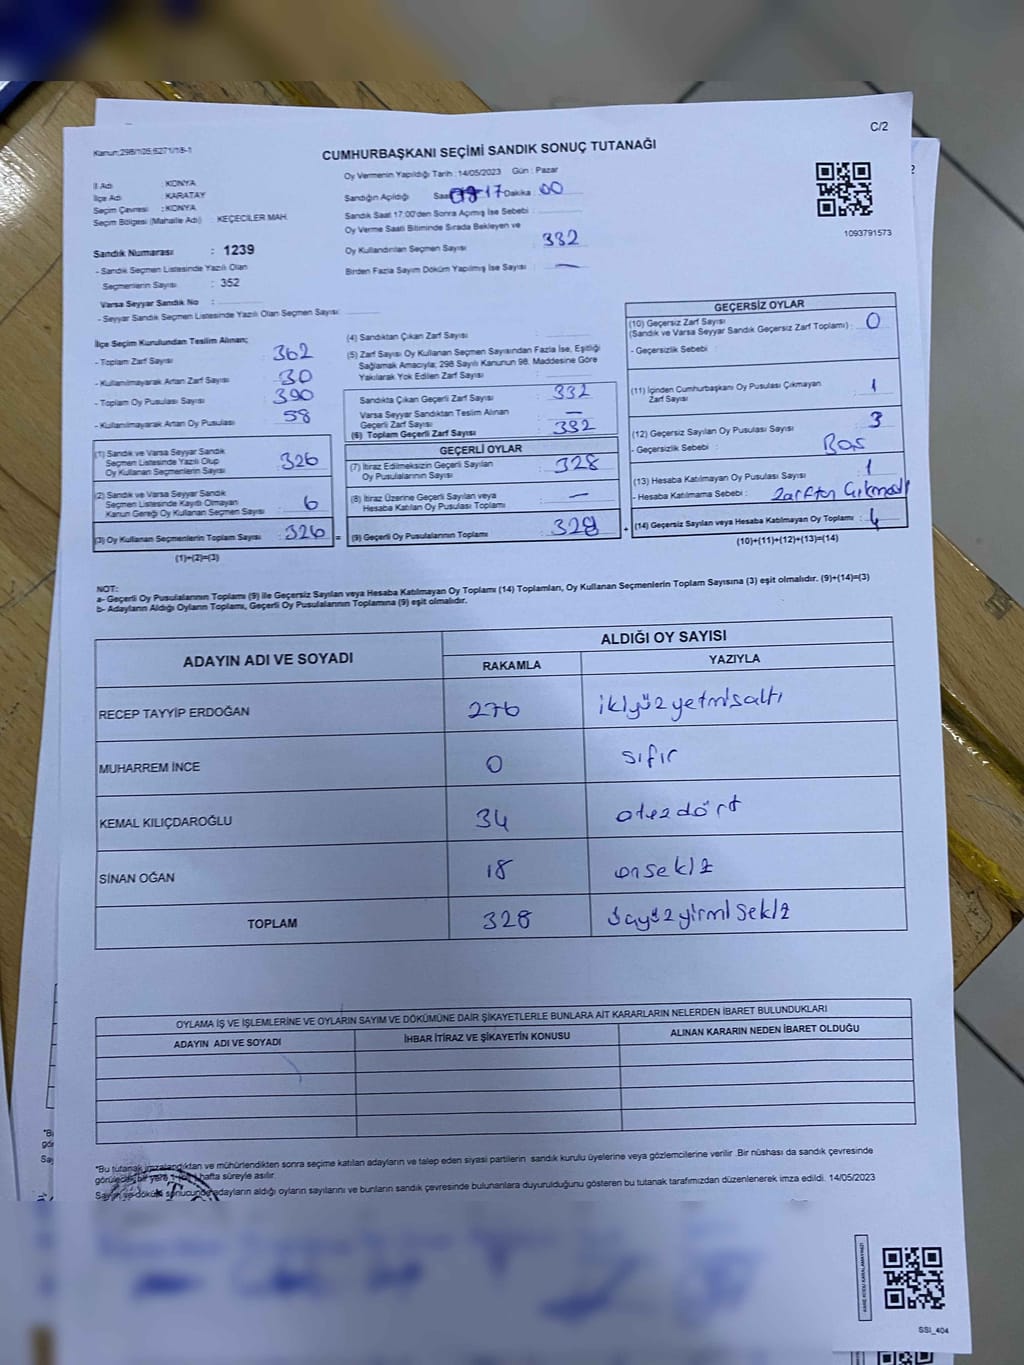 C/2
Kanun:298/105;6271/18-1
CUMHURBAŞKANI SEÇİMİ SANDIK SONUÇ TUTANAĞI
Oy Vermenin Yapıldığı Tarih : 14/05/2023 Gün : Pazar
İl Adı : KONYA
İlçe Adı : KARATAY
Seçim Çevresi : KONYA
Seçim Bölgesi (Mahalle Adı) : KEÇECİLER MAH.
Sandığın Açıldığı Saat 17 Dakika : 00
Sandık Saat 17:00'den Sonra Açımış İse Sebebi :
Oy Verme Saati Bitiminde Sırada Bekleyen ve
Oy Kullandırılan Seçmen Sayısı : 332
Birden Fazla Sayım Döküm Yapılmış İse Sayısı : —
1093791573
Sandık Numarası : 1239
- Sandık Seçmen Listesinde Yazılı Olan
Seçmenlerin Sayısı : 352
Varsa Seyyar Sandık No :
- Seyyar Sandık Seçmen Listesinde Yazılı Olan Seçmen Sayısı:
İlçe Seçim Kurulundan Teslim Alınan;
- Toplam Zarf Sayısı : 362
- Kullanılmayarak Artan Zarf Sayısı : 30
- Toplam Oy Pusulası Sayısı : 390
- Kullanılmayarak Artan Oy Pusulası : 58
(1) Sandık ve Varsa Seyyar Sandık
Seçmen Listesinde Yazılı Olup
Oy Kullanan Seçmenlerin Sayısı : 326
(2) Sandık ve Varsa Seyyar Sandık
Seçmen Listesinde Kayıtlı Olmayan
Kanun Gereği Oy Kullanan Seçmen Sayısı : 6
(3) Oy Kullanan Seçmenlerin Toplam Sayısı : 326 =
(1)+(2)=(3)
(4) Sandıktan Çıkan Zarf Sayısı :
(5) Zarf Sayısı Oy Kullanan Seçmen Sayısından Fazla İse, Eşitliği
Sağlamak Amacıyla; 298 Sayılı Kanunun 98. Maddesine Göre
Yakılarak Yok Edilen Zarf Sayısı :
Sandıkta Çıkan Geçerli Zarf Sayısı : 332
Varsa Seyyar Sandıktan Teslim Alınan
Geçerli Zarf Sayısı : —
(6) Toplam Geçerli Zarf Sayısı : 332
GEÇERLİ OYLAR
(7) İtiraz Edilmeksizin Geçerli Sayılan
Oy Pusulalarının Sayısı : 328
(8) İtiraz Üzerine Geçerli Sayılan veya
Hesaba Katılan Oy Pusulası Toplamı : —
(9) Geçerli Oy Pusulalarının Toplamı : 328 +
GEÇERSİZ OYLAR
(10) Geçersiz Zarf Sayısı
(Sandık ve Varsa Seyyar Sandık Geçersiz Zarf Toplamı) : 0
- Geçersizlik Sebebi :
(11) İçinden Cumhurbaşkanı Oy Pusulası Çıkmayan
Zarf Sayısı : 1
(12) Geçersiz Sayılan Oy Pusulası Sayısı : 3
- Geçersizlik Sebebi :
(13) Hesaba Katılmayan Oy Pusulası Sayısı : 1
- Hesaba Katılmama Sebebi : Zarftan Çıkmadı
(14) Geçersiz Sayılan veya Hesaba Katılmayan Oy Toplamı : 4
(10)+(11)+(12)+(13)=(14)
NOT:
a- Geçerli Oy Pusulalarının Toplamı (9) ile Geçersiz Sayılan veya Hesaba Katılmayan Oy Toplamı (14) Toplamları, Oy Kullanan Seçmenlerin Toplam Sayısına (3) eşit olmalıdır. (9)+(14)=(3)
b- Adayların Aldığı Oyların Toplamı, Geçerli Oy Pusulalarının Toplamına (9) eşit olmalıdır.
ADAYIN ADI VE SOYADI ALDIĞI OY SAYISI
RAKAMLA YAZIYLA
RECEP TAYYİP ERDOĞAN 276 ikiyüzyetmişaltı
MUHARREM İNCE 0 sıfır
KEMAL KILIÇDAROĞLU 34 otuzdört
SİNAN OĞAN 18 onsekiz
TOPLAM 328 üçyüzyirmisekiz
OYLAMA İŞ VE İŞLEMLERİNE VE OYLARIN SAYIM VE DÖKÜMÜNE DAİR ŞİKAYETLERLE BUNLARA AİT KARARLARIN NELERDEN İBARET BULUNDUKLARI
ADAYIN ADI VE SOYADI İHBAR İTİRAZ VE ŞİKAYETİN KONUSU ALINAN KARARIN NEDEN İBARET OLDUĞU
*Bu tutanak imzalandıktan ve mühürlendikten sonra seçime katılan adayların ve talep eden siyasi partilerin sandık kurulu üyelerine veya gözlemcilerine verilir .Bir nüshası da sandık çevresinde
görülecek bir yere 1 hafta süreyle asılır.
Sayım ve döküm sonucunda adayların aldığı oyların sayılarını ve bunların sandık çevresinde bulunanlara duyurulduğunu gösteren bu tutanak tarafımızdan düzenlenerek imza edildi. 14/05/2023
KARE KODU KARALAMAYINIZ!
SSI_404